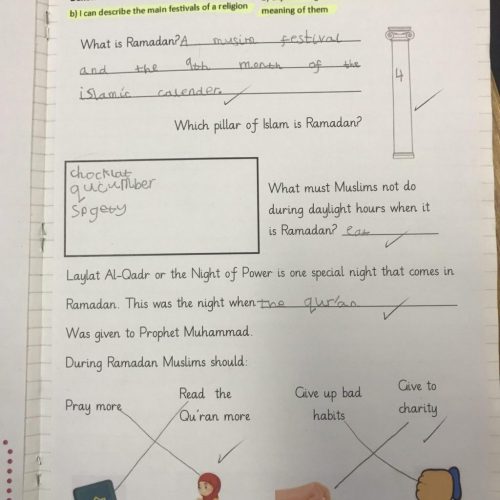 b) I can describe the main festivals of a religion
meaning of them
What is Ramadan? A musim festival
and the 9th month of the
islamic calender
4
Which pillar of Islam is Ramadan?
chocklat
qucumber
spgety
What must Muslims not do
during daylight hours when it
is Ramadan? eat
Laylat Al-Qadr or the Night of Power is one special night that comes in
Ramadan. This was the night when the qur'an
Was given to Prophet Muhammad.
During Ramadan Muslims should:
Pray more
Read the
Qu'ran more
Give up bad
habits
Give to
charity